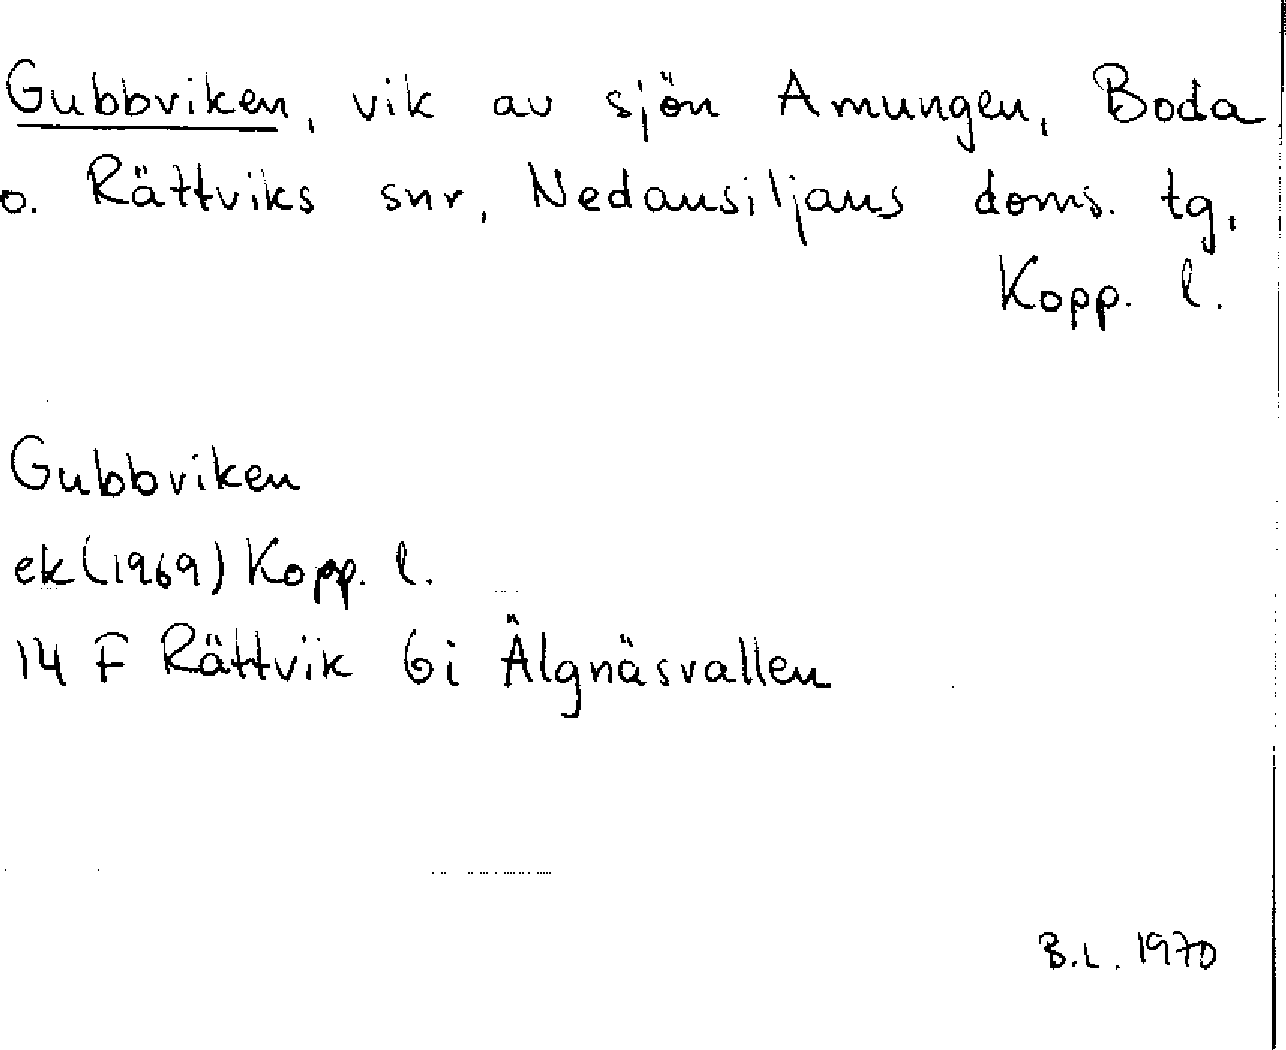 Gubbviken, vik av sjön Amungen, Boda
o. Rättviks snr, Nedansiljans doms. tg,
Kopp. l.
Gubbviken
ek (1969) Kopp. l.
14 F Rättvik 6i Älgnäsvallen
B.L. 1970